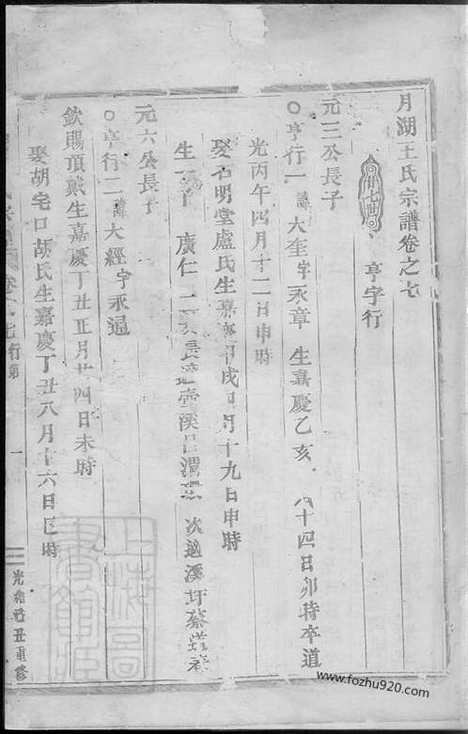 月湖王氏宗譜卷之七
廿七世 亨字行
元三公長子
○亨行一諱大奎字永章 生嘉慶乙亥 八十四日卯時卒道
光丙午四月十二日申時
娶石明堂盧氏生嘉慶甲戌四月十九日申時
生 廣仁 二 長適壺溪呂 次適溪圩蔡
元六公長子
○亨行二諱大經字永
欽賜頂戴生嘉慶丁丑正月廿四日未時
娶胡宅口胡氏生嘉慶丁丑八月十六日巳時
行第 一
光緒 丑重修
上海圖書館
www.fozhu920.com